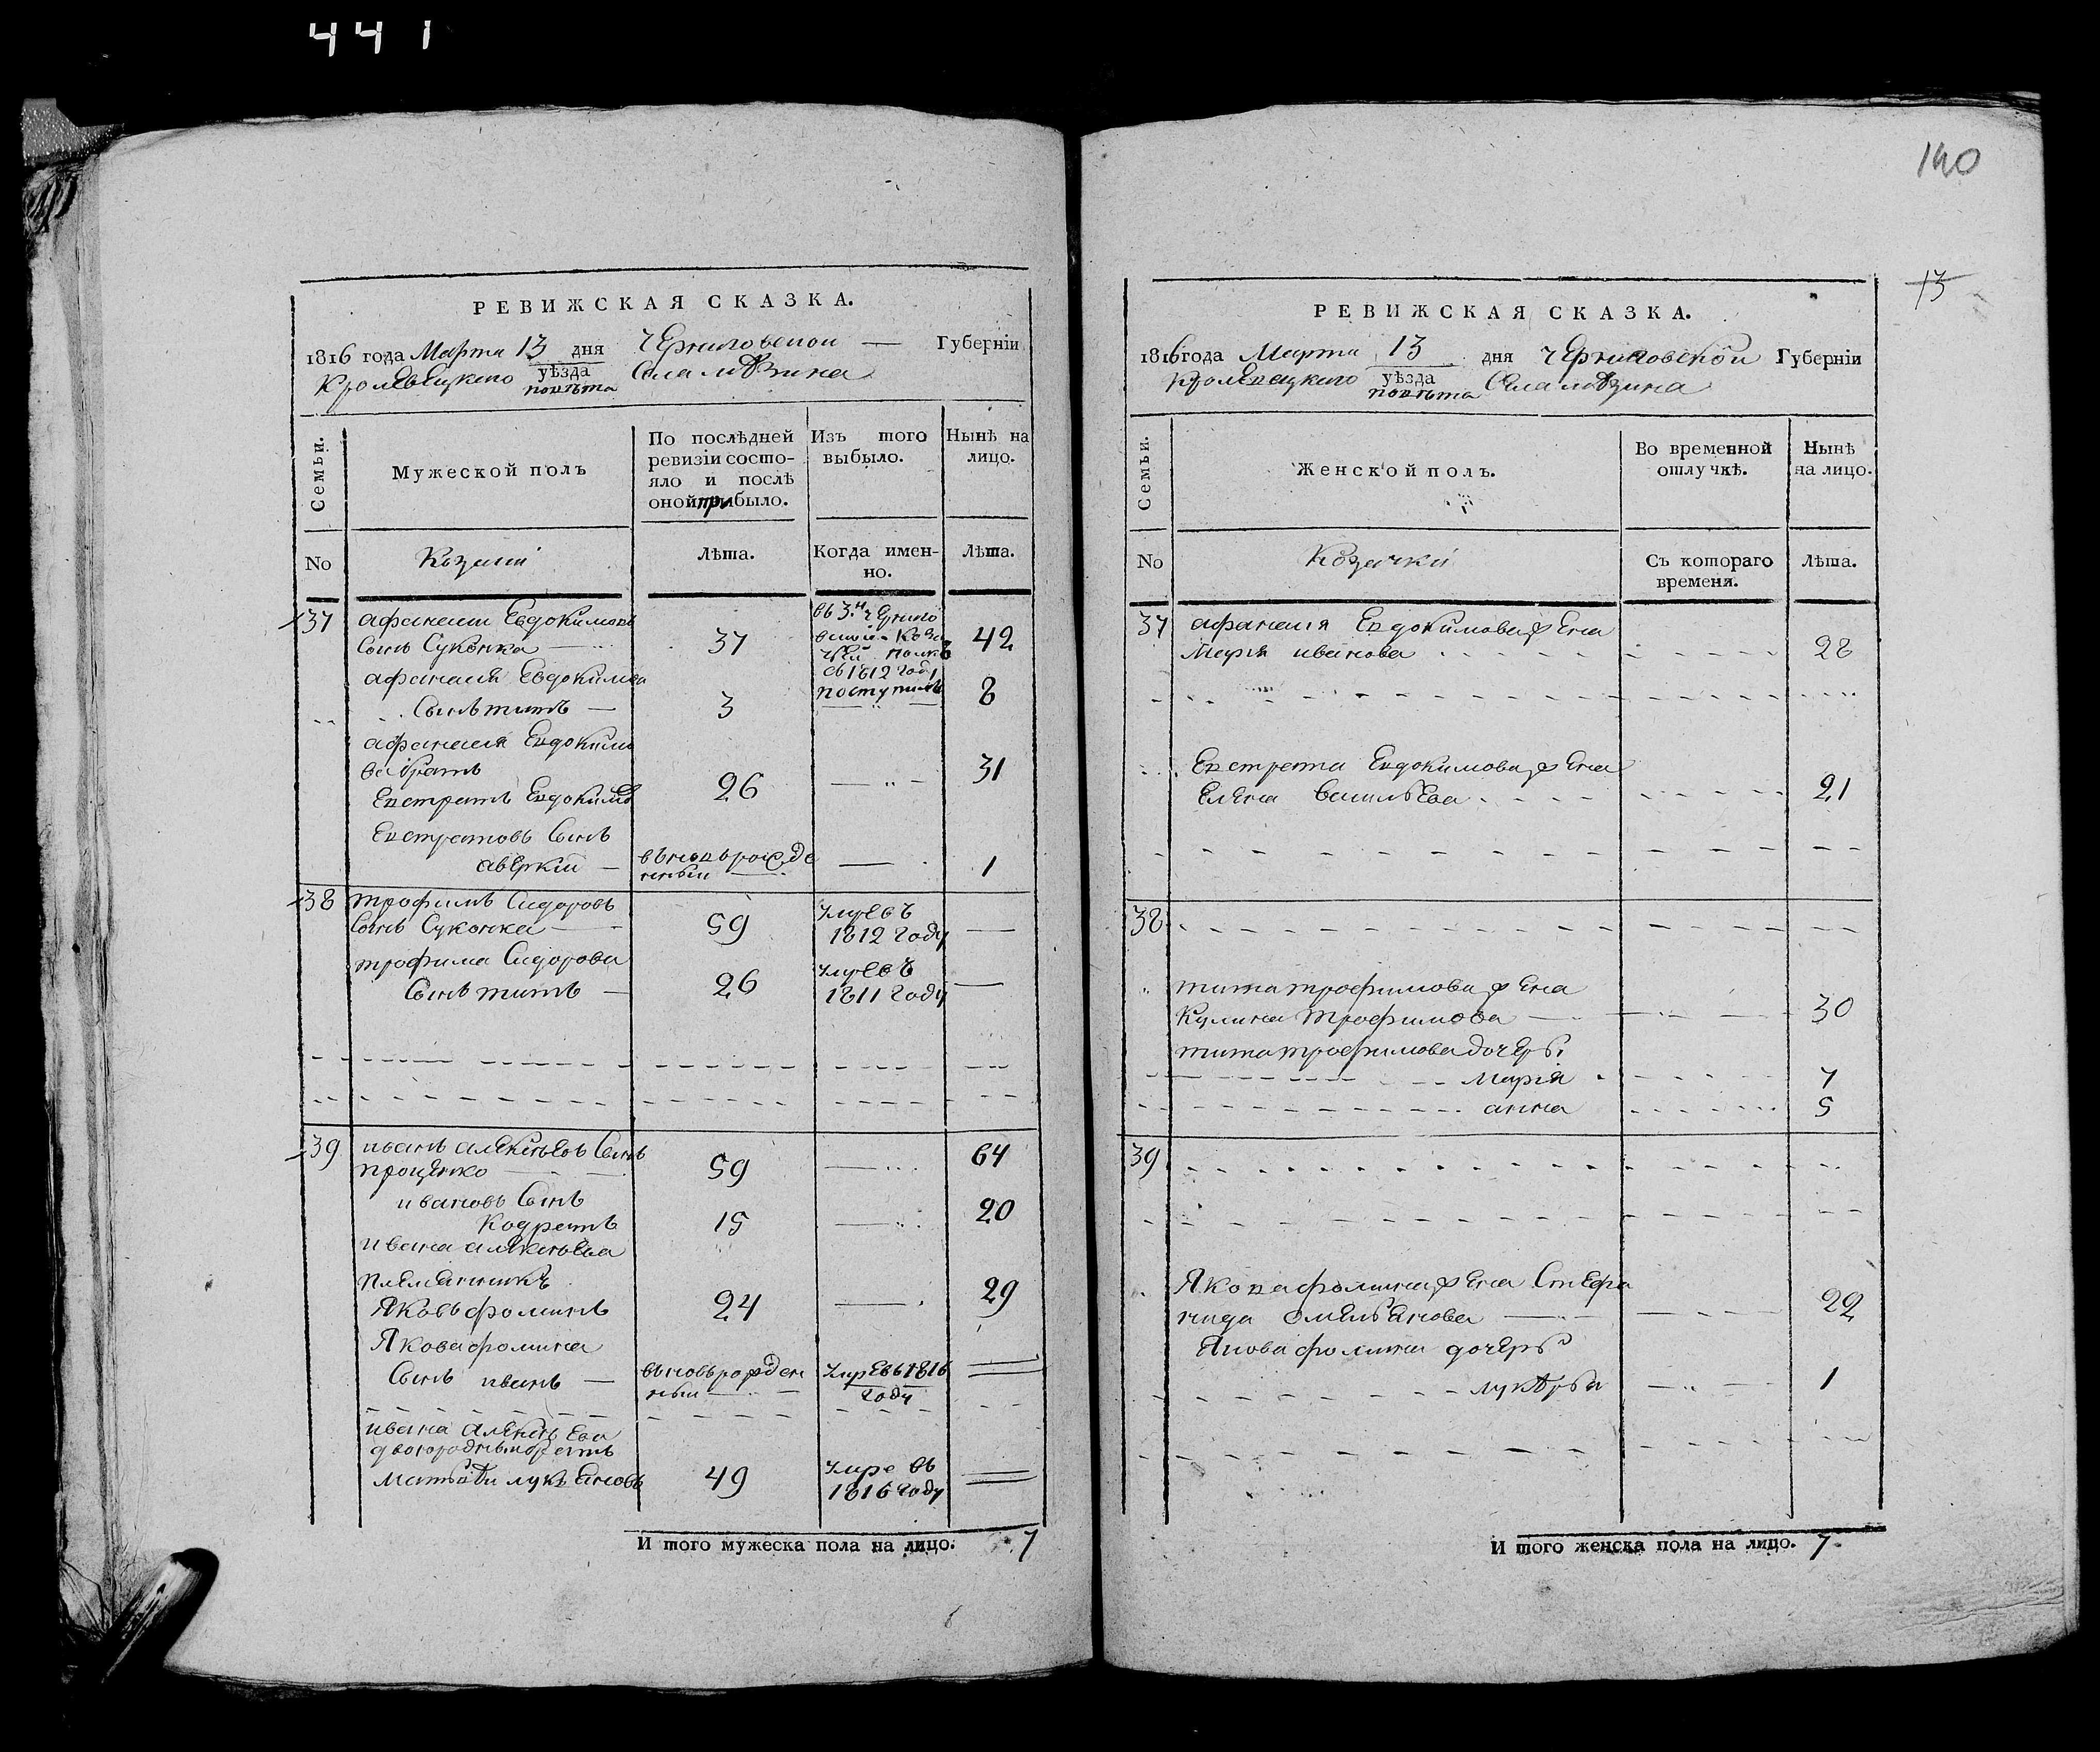 441
РЕВИЖСКАЯ СКАЗКА.
1816 года Марта 13 дня Черниговской Губерніи
Кролевецкого уѣзда Села
повѣта
Семьи.
Мужеской полъ
По послѣдней ревизіи состо-
яло и послѣ
оной прибыло.
Изъ того
выбыло.
Нынѣ на
лицо.
No
Козаки
Лѣта.
Когда имен-
но.
Лѣта.
37 афанасии Евдокимовъ
Сынъ Суконка 37 42
въ 3й Черниго
вский Коза
чий полкъ
въ 1812 году
поступилъ
афанасия Евдокимова
Сынъ титъ 3 8
афанасия Евдокимо
ва братъ
Евстратъ Евдокимовъ 26 31
Евстратовъ Сынъ
аверкий вновь рожде
нный 1
38 трофимъ Сидоровъ
Сынъ Суконка 59 умре въ
1812 году
трофима Сидорова
Сынъ титъ 26 умре въ
1811 году
39 иванъ алексѣевъ Сынъ
проценко 59 64
ивановъ Сынъ
Кодратъ 15 20
ивана алексѣева
племянникъ
Яковъ фоминъ 24 29
Якова фомина
Сынъ иванъ вновь рожден
ный умре въ 1816
году
ивана алексѣева
двоюродный братъ
матвѣи лукъяновъ 49 умре въ
1816 году
И того мужеска пола на лицо. 7
140
13
РЕВИЖСКАЯ СКАЗКА.
1816 года Марта 13 дня Черниговской Губерніи
Кролевецкого уѣзда Села
повѣта
Семьи.
Женской полъ.
Во временной
отлучкѣ.
Нынѣ
на лицо.
No
Козачки
Съ котораго
времени.
Лѣта.
37 афанасия Евдокимова жена
Мария иванова 28
Евстрата Евдокимова жена
Елена василѣева 21
38
тита трофимова жена
Кулина трофимова 30
тита трофимова дочерѣ
Мария 7
анна 5
39
Якова фомина жена Стефа
нида омелѣянова 22
Якова фомина дочерь
лукѣрья 1
И того женска пола на лицо. 7